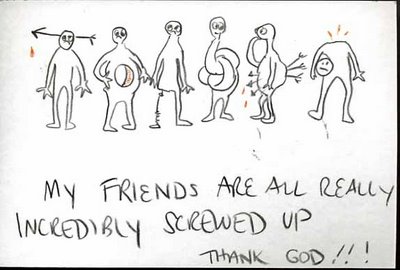 MY FRIENDS ARE ALL REALLY
INCREDIBLY SCREWED UP
THANK GOD!!!